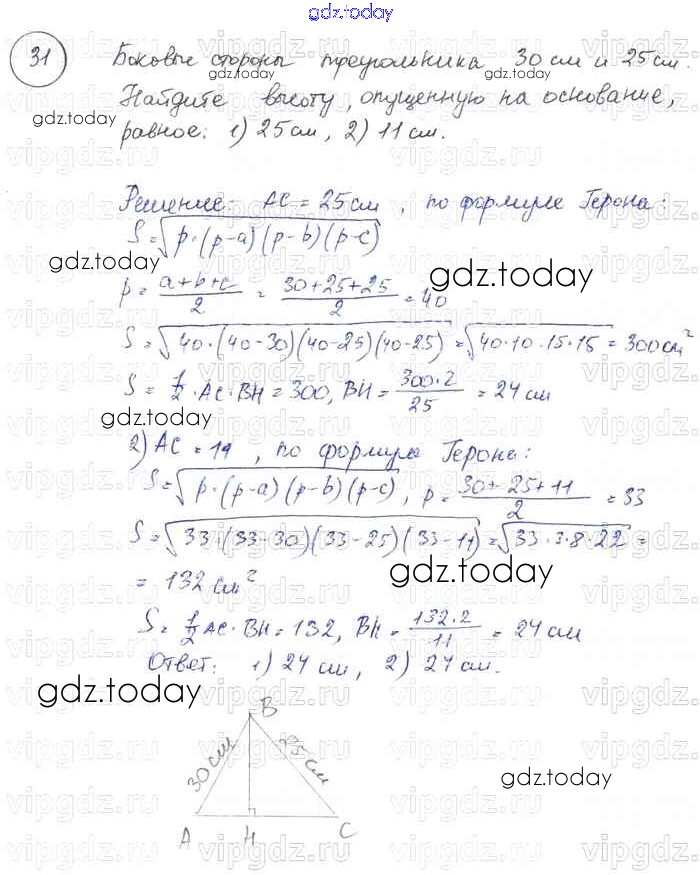 gdz.today
31 Боковые стороны треугольника 30 см и 25 см.
Найдите высоту, опущенную на основание,
gdz.today
равное: 1) 25 см, 2) 11 см.
Решение: AC = 25 см, по формуле Герона:
S = √p·(p-a)(p-b)(p-c)
gdz.today
gdz.today
p = a+b+c/2 = 30+25+25/2 = 40
S = √40·(40-30)(40-25)(40-25) = √40·10·15·15 = 300 см²
S = 1/2·AC·BH = 300, BH = 300·2/25 = 24 см
gdz.today
2) AC = 11, по формуле Герона:
S = √p·(p-a)(p-b)(p-c), p = 30+25+11/2 = 33
S = √33·(33-30)(33-25)(33-11) = √33·3·8·22 =
gdz.today
= 132 см²
S = 1/2 AC·BH = 132, BH = 132·2/11 = 24 см
Ответ: 1) 24 см, 2) 24 см.
gdz.today
B
30 см
25 см
gdz.today
A H C
vipgdz.ru